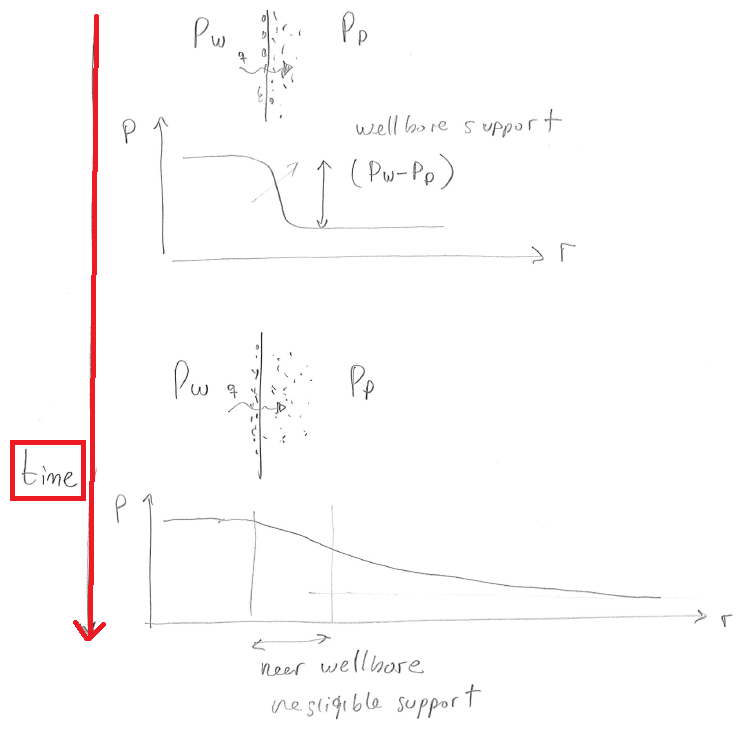 Pw Pp
q
P
wellbore support
(Pw-Pp)
r
Pw q Pp
time
P
r
neer wellbore
negligible support